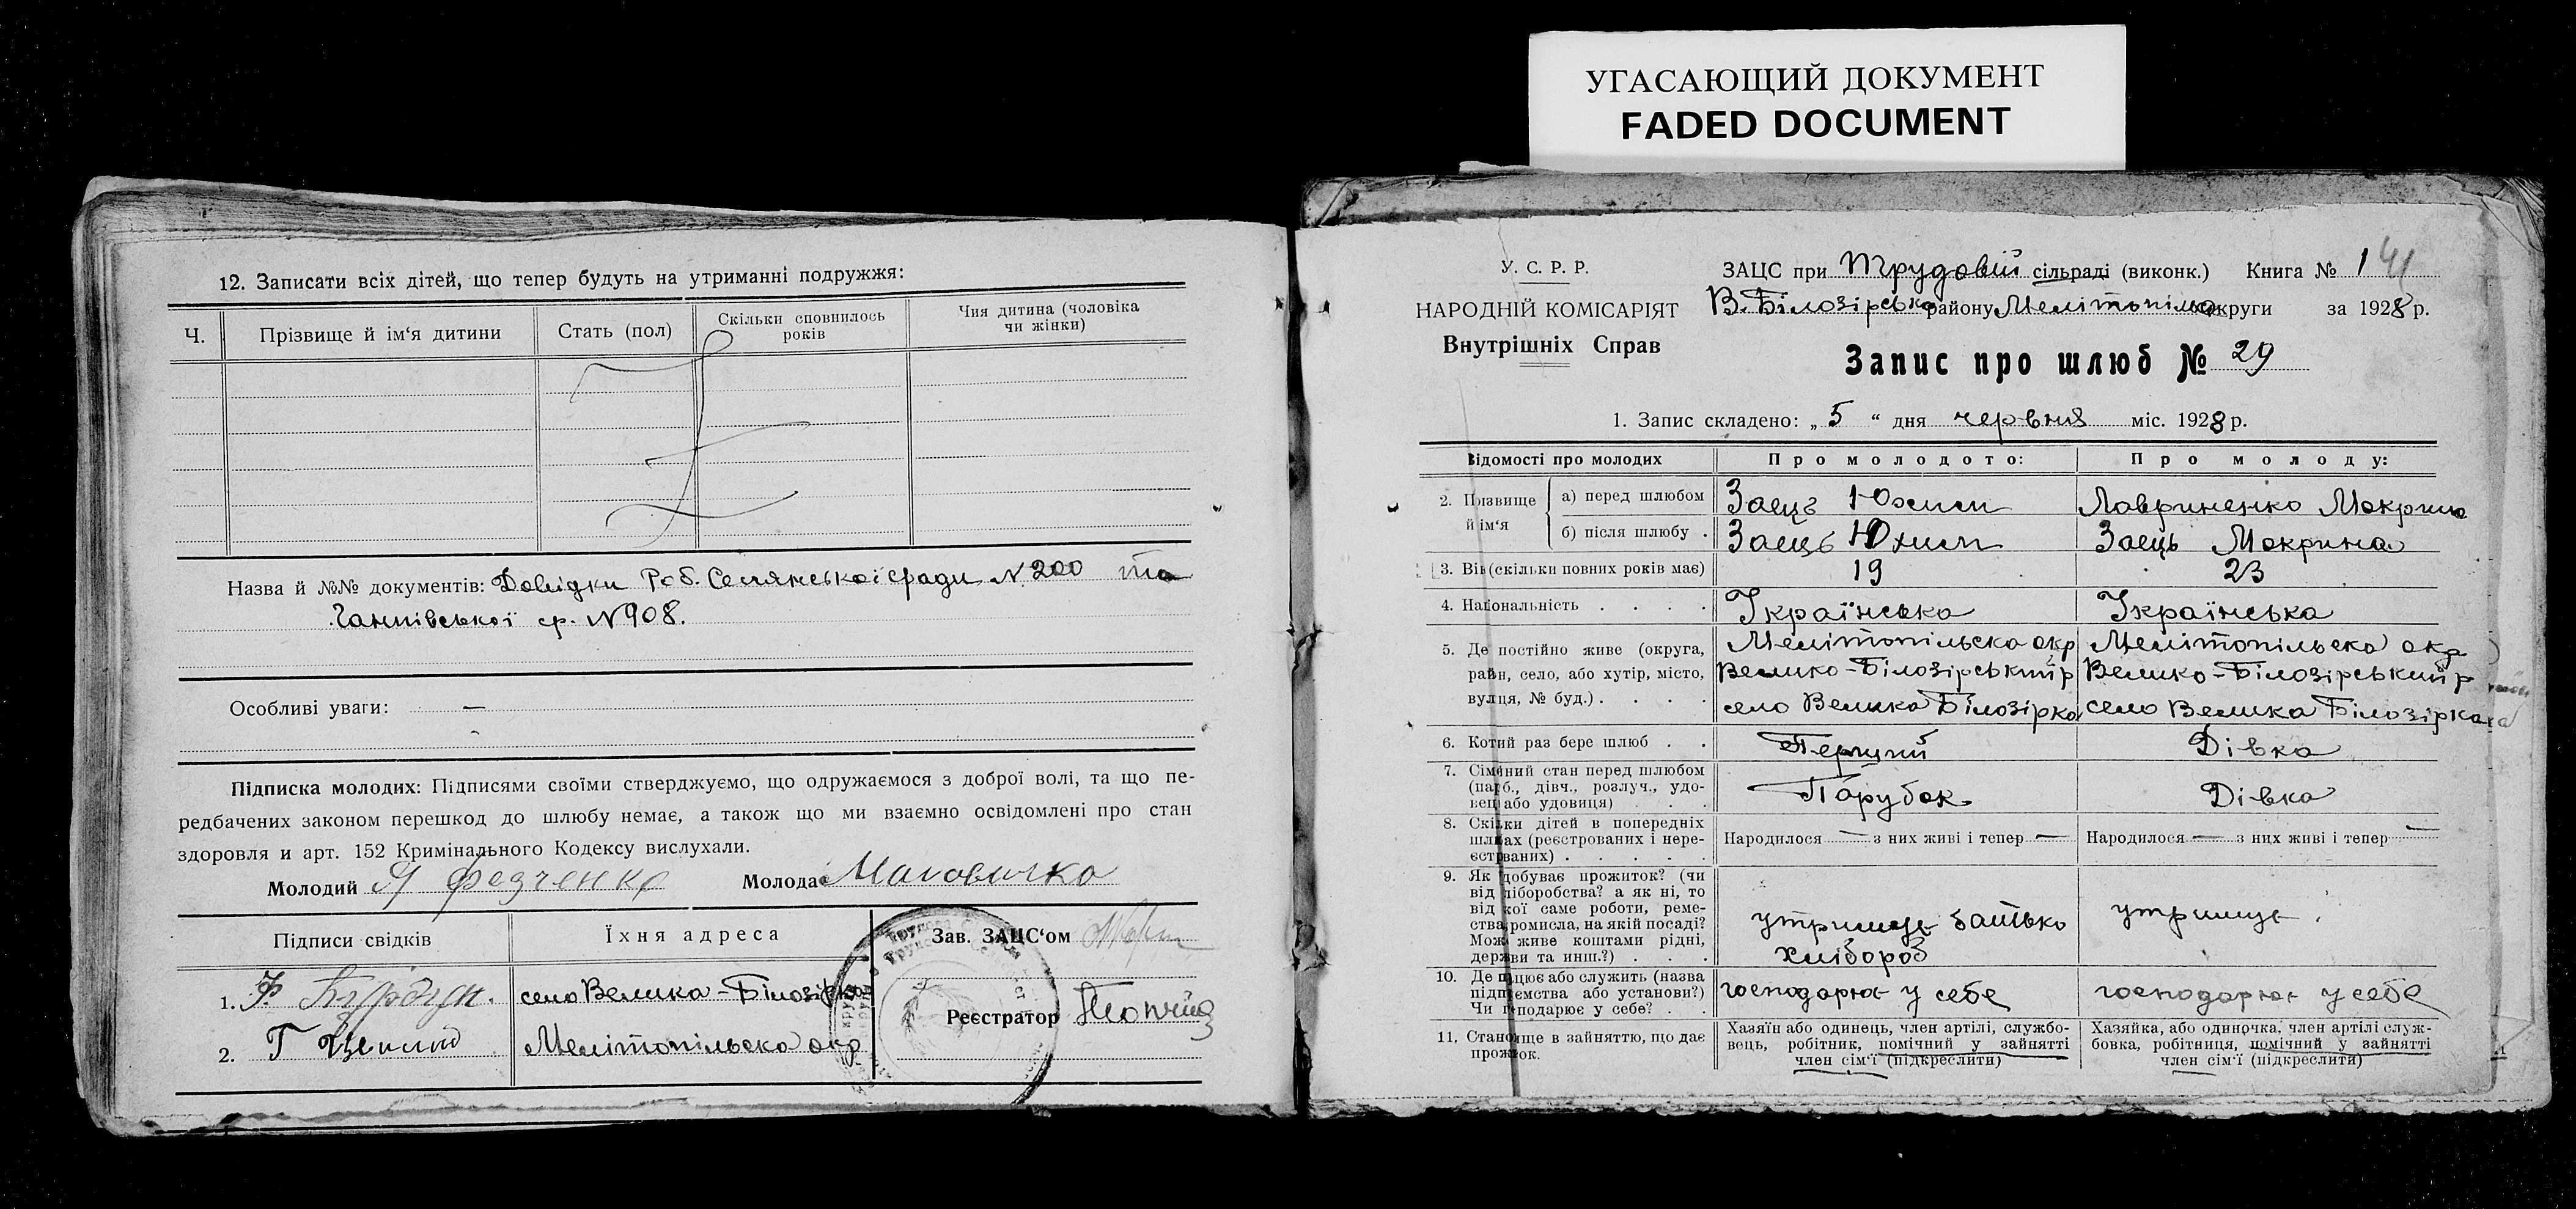 УГАСАЮЩИЙ ДОКУМЕНТ
FADED DOCUMENT
12. Записати всіх дітей, що тепер будуть на утриманні подружжя:
Ч. Прізвище й ім‘я дитини Стать (пол) Скільки сповнилось років Чия дитина (чоловіка чи жінки)
Назва й №№ документів: Довідки Роб. Селянської сради N 200 та
Ганнівської ср. N 908.
Особливі уваги: —
Підписка молодих: Підписями своїми стверджуємо, що одружаємося з доброї волі, та що пе-
редбачених законом перешкод до шлюбу немає, а також що ми взаємно освідомлені про стан
здоровля и арт. 152 Кримінального Кодексу вислухали.
Молодий Я Федченко Молода Маковичка
Підписи свідків Їхня адреса Зав. ЗАЦС‘ом
1. Ф село Велика-Білозірка
Реєстратор
2. Г Мелітопільска окр
У. С. Р. Р.
НАРОДНІЙ КОМІСАРІЯТ
Внутрішніх Справ
ЗАЦС при Трудовій сільраді (виконк.) Книга № 1 41
В. Білозірсько району Мелітопільс округи за 1928 р.
Запис про шлюб № 29
1. Запис складено: „ 5 “ дня червня міс. 1928 р.
Відомості про молодих Про молодого: Про молоду:
2. Прізвище й ім‘я
а) перед шлюбом Заець Юхим Лавриненко Мокрина
б) після шлюбу . Заець Юхим Заець Мокрина
3. Вік (скільки повних років має) 19 23
4. Національність . . . . Українська Українська
5. Де постійно живе (округа, Мелітопільска окр Мелітопільска окр
район, село, або хутір, місто, Велико-Білозірський р Велико-Білозірський р
вулця, № буд.) . . . . село Велика Білозірка село Велика Білозірка
6. Котий раз бере шлюб . . Перший Дівка
7. Сімейний стан перед шлюбом
(парб., дівч., розлуч., удо-
вец або удовиця) . . Парубок Дівка
8. Скільки дітей в попередніх
шлюбах (реєстрованих і нере-
єстрованих) . . . . . Народилося — з них живі і тепер — Народилося — з них живі і тепер —
9. Як добуває прожиток? (чи
від хліборобства? а як ні, то
від якої саме роботи, реме-
ства, промисла, на якій посаді?
Може живе коштами рідні,
держави та инш.?) . . . утримує батько хлібороб утримує
10. Де працює або служить (назва
підприємства або установи?)
Чи господарює у себе? . . господарює у себе господарює у себе
11. Становище в зайняттю, що дає
прожиток.
Хазяїн або одинець, член артілі, службо-
вець, робітник, помічний у зайнятті
член сім‘ї (підкреслити)
Хазяйка, або одиночка, член артілі служ-
бовка, робітниця, помічний у зайнятті
член сім‘ї (підкреслити)